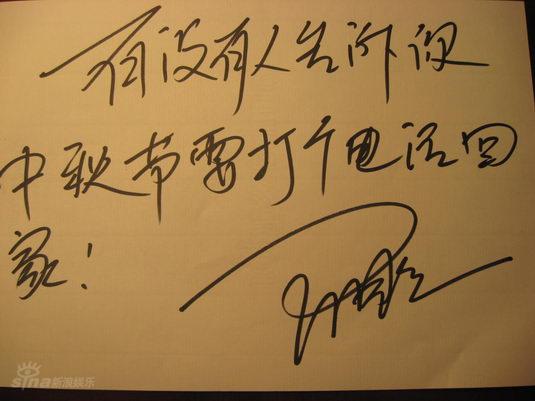 有没有人告诉你
中秋节要打个电话回
家!
sina新浪娱乐